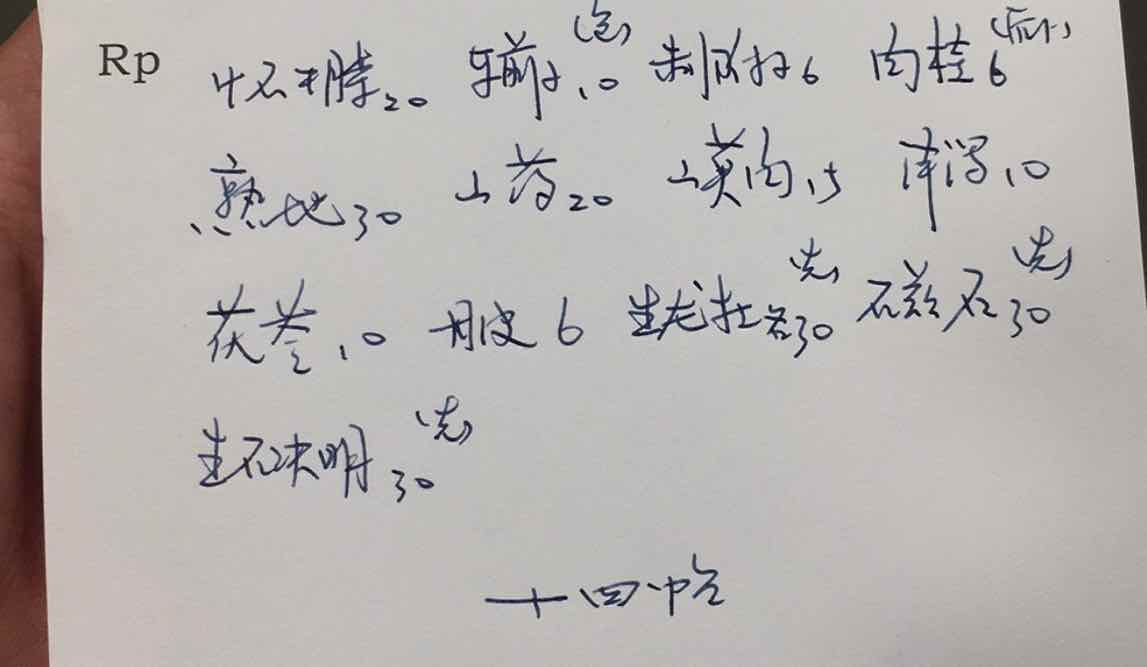 Rp 怀牛膝20 车前子10(包) 制附子6 肉桂6(后下)
熟地30 山药20 山萸肉15 泽泻10
茯苓10 丹皮6 生龙牡各30(先) 石30(先)
生石决明30(先)
十四